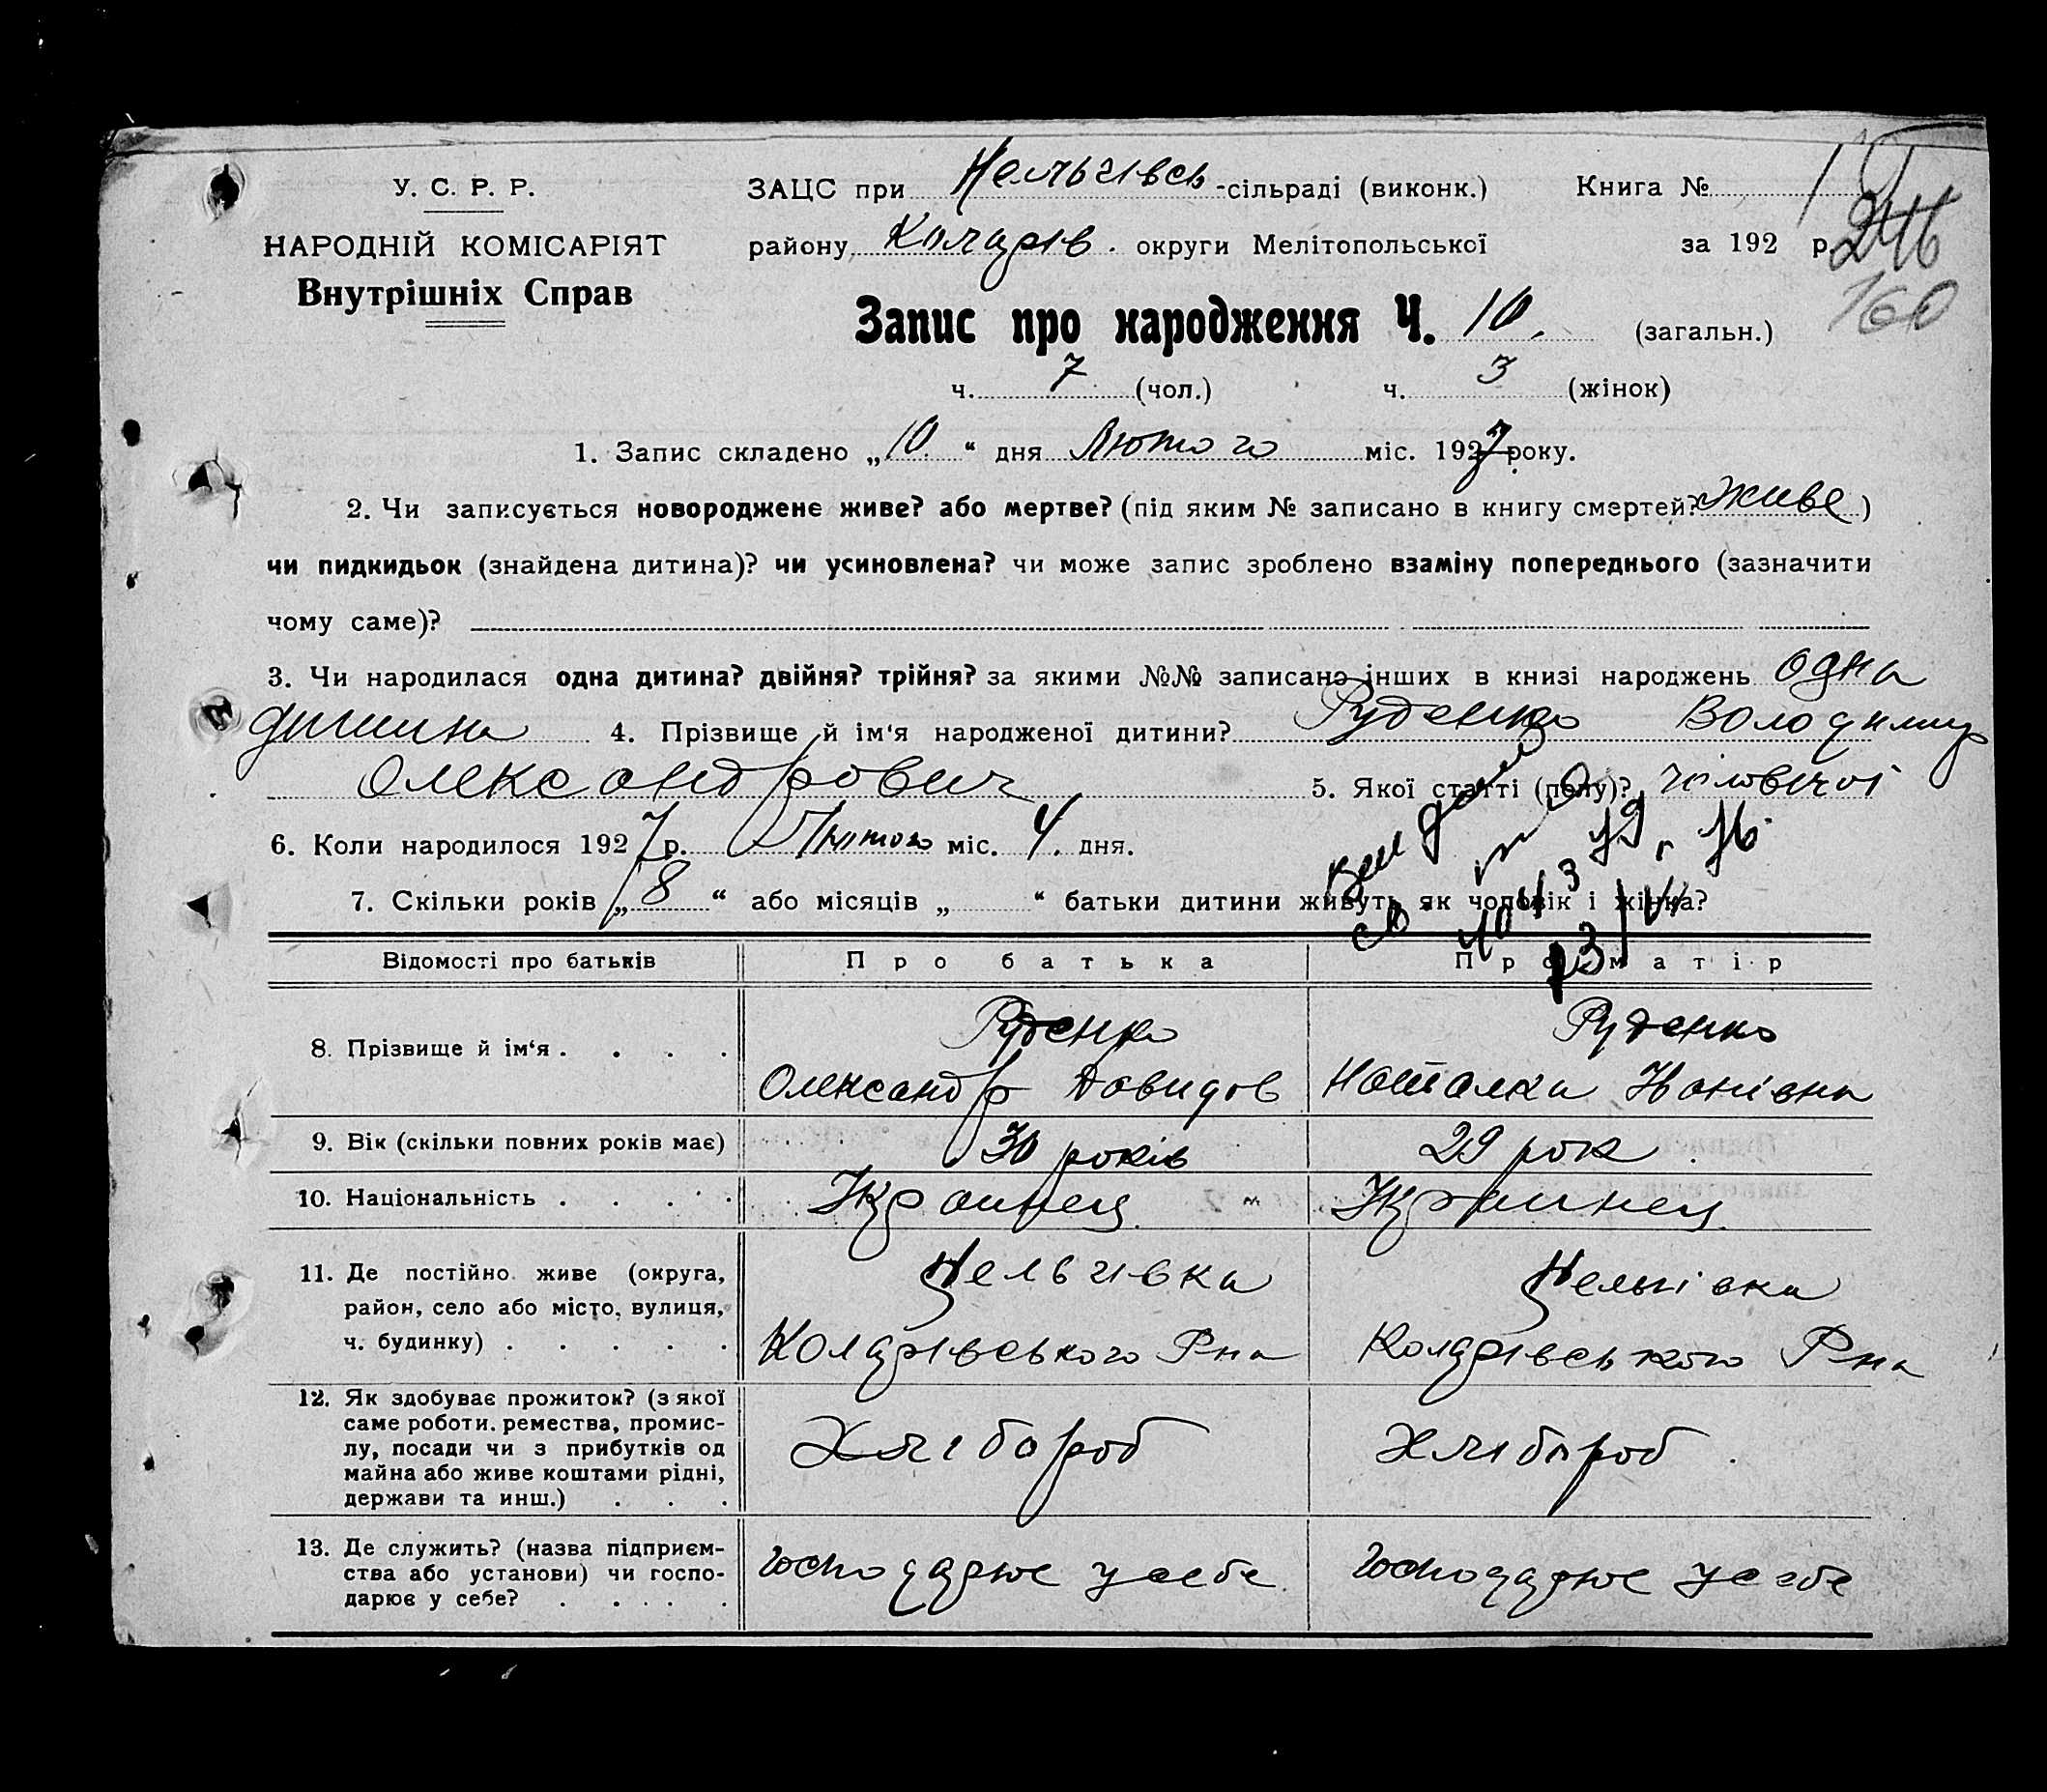 У. С. Р. Р.
НАРОДНІЙ КОМІСАРІЯТ
Внутрішніх Справ
ЗАЦС при Нельгівсь -сільраді (виконк.) Книга № 1
району Коларів. округи Мелітопольської за 192 р.
246
160
Запис про народження Ч. 10. (загальн.)
ч. 7 (чол.) ч. 3 (жінок)
1. Запис складено „10.“ дня Лютого міс. 1927 року.
2. Чи записується новороджене живе? або мертве? (під яким № записано в книгу смертей? живе)
чи пидкидьок (знайдена дитина)? чи усиновлена? чи може запис зроблено взаміну попереднього (зазначити
чому саме)?
3. Чи народилася одна дитина? двійня? трійня? за якими №№ записано інших в книзі народжень одна
дитина 4. Прізвище й ім‘я народженої дитини? Руденко Володимир
Олександрович 5. Якої статті (полу)? чоловічої
6. Коли народилося 1927 р. Лютого міс. 4. дня.
7. Скільки років „8“ або місяців „ “ батьки дитини живуть як чоловік і жінка?
Відомості про батьків Про батька Про матір
8. Прізвище й ім‘я . . . . Руденко Олександр Давидов Руденко Наталка Іванівна
9. Вік (скільки повних років має) 30 років 29 рок.
10. Національність . . . . Українец Українец
11. Де постійно живе (округа,
район, село або місто, вулиця,
ч. будинку) . . . . . Нельгівка Коларівського Р-на Нельгівка Коларівського Р-на
12. Як здобуває прожиток? (з якої
саме роботи. ремества, промис-
лу, посади чи з прибутків од
майна або живе коштами рідні,
держави та инш.) . . . Хлібороб Хлібороб.
13. Де служить? (назва підприєм-
ства або установи) чи госпо-
дарює у себе? . . . . . господарює у себе господарює у себе